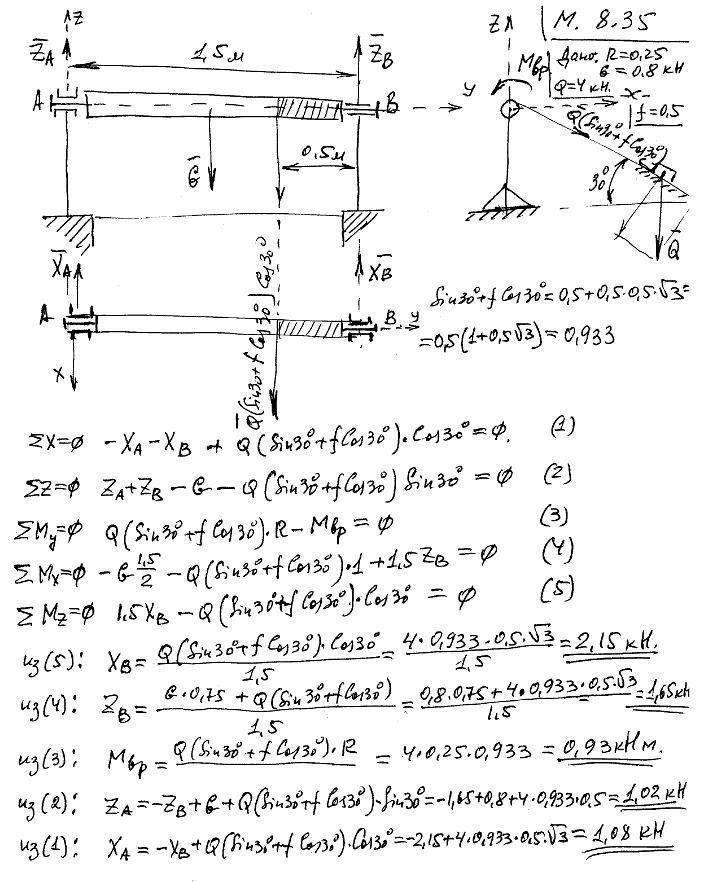 М. 8.35
Дано: R=0,25
G = 0.8 кН
Q=4 кН.
f=0,5
z
Z̅A
Z̅B
1,5м
A
B
y
G̅
0,5м
z
Mвр
y
x
Q(Sin30°+fCos30°)
30°
Q̅
X̅A
X̅B
A
B
y
x
Q̅(Sin30°+f Cos30°) Cos30°
Sin30°+f Cos30°=0,5+0,5·0,5·√3=
=0,5(1+0,5√3)=0,933
Σx=φ -XA-XB + Q(Sin30°+fCos30°)·Cos30°=φ. (1)
Σz=φ ZA+ZB-G-Q(Sin30°+fCos30°)Sin30°=φ (2)
ΣMy=φ Q(Sin30°+f Cos30°)·R-Mвр=φ (3)
ΣMx=φ -G 1,5/2 -Q(Sin30°+fCos30°)·1+1,5ZB=φ (4)
ΣMz=φ 1.5XB-Q(Sin30°+fCos30°)·Cos30°=φ (5)
из(5): XB= Q(Sin30°+fCos30°)·Cos30°/1,5 = 4·0,933·0.5·√3/1.5 = 2,15 кН.
из(4): ZB= G·0,75+Q(Sin30°+fCos30°)/1.5 = 0,8·0,75+4·0,933·0.5·√3/1.5 =1,65кН
из(3): Mвр= Q(Sin30°+f Cos30°)·R = 4·0,25·0,933 = 0,93кНм.
из(2): ZA=-ZB+G+Q(Sin30°+f Cos30°)·Sin30°=-1,65+0,8+4·0,933·0.5=1,02 кН
из(1): XA=-XB+Q(Sin30°+f Cos30°)·Cos30°=-2,15+4·0,933·0.5·√3=1,08 кН